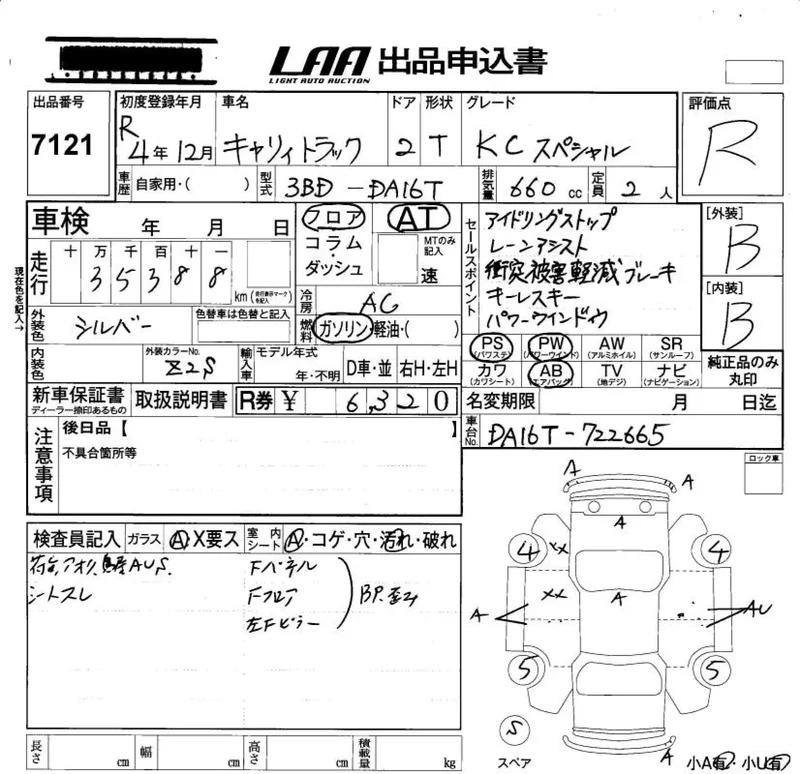 LAA 出品申込書
LIGHT AUTO AUCTION
出品番号 初度登録年月 車名 ドア 形状 グレード 評価点
7121 R 4年12月 キャリィトラック 2 T KC スペシャル R
車歴 自家用・( ) 型式 3BD-DA16T 排気量 660 cc 定員 2 人
車検 年 月 日 フロア AT セールスポイント アイドリングストップ [外装]
走行 十 万 千 百 十 一 コラム・ダッシュ MTのみ記入 速 レーンアシスト B
3 5 3 8 8 km (走行表示マークを記入) 衝突被害軽減ブレーキ
現在色を記入→ 冷房 AC キーレスキー [内装]
外装色 シルバー 色替車は色替と記入 燃料 ガソリン・軽油・( ) パワーウインドウ B
内装色 外装カラーNo. Z2S 輸入車 モデル年式 年・不明 D車・並 右H・左H
PS (パワステ) PW (パワーウインド) AW (アルミホイル) SR (サンルーフ) 純正品のみ丸印
カワ (カワシート) AB (エアバッグ) TV (地デジ) ナビ (ナビゲーション)
新車保証書 ディーラー捺印あるもの 取扱説明書 R券 ¥ 6,320 名変期限 月 日迄
注意事項 後日品【 】 車台No. DA16T-722665
不具合箇所等 ロック車
検査員記入 ガラス A・X要ス 室内シート A・コゲ・穴・汚れ・破れ
荷台,アオリ, AUS. Fパネル
シートスレ Fフロア BP.歪み
左Fピラー
A A
A
4 XX 4
XX A
A AU
5 5
S
スペア A 小A有・小U有
長さ cm 幅 cm 高さ cm 積載量 kg